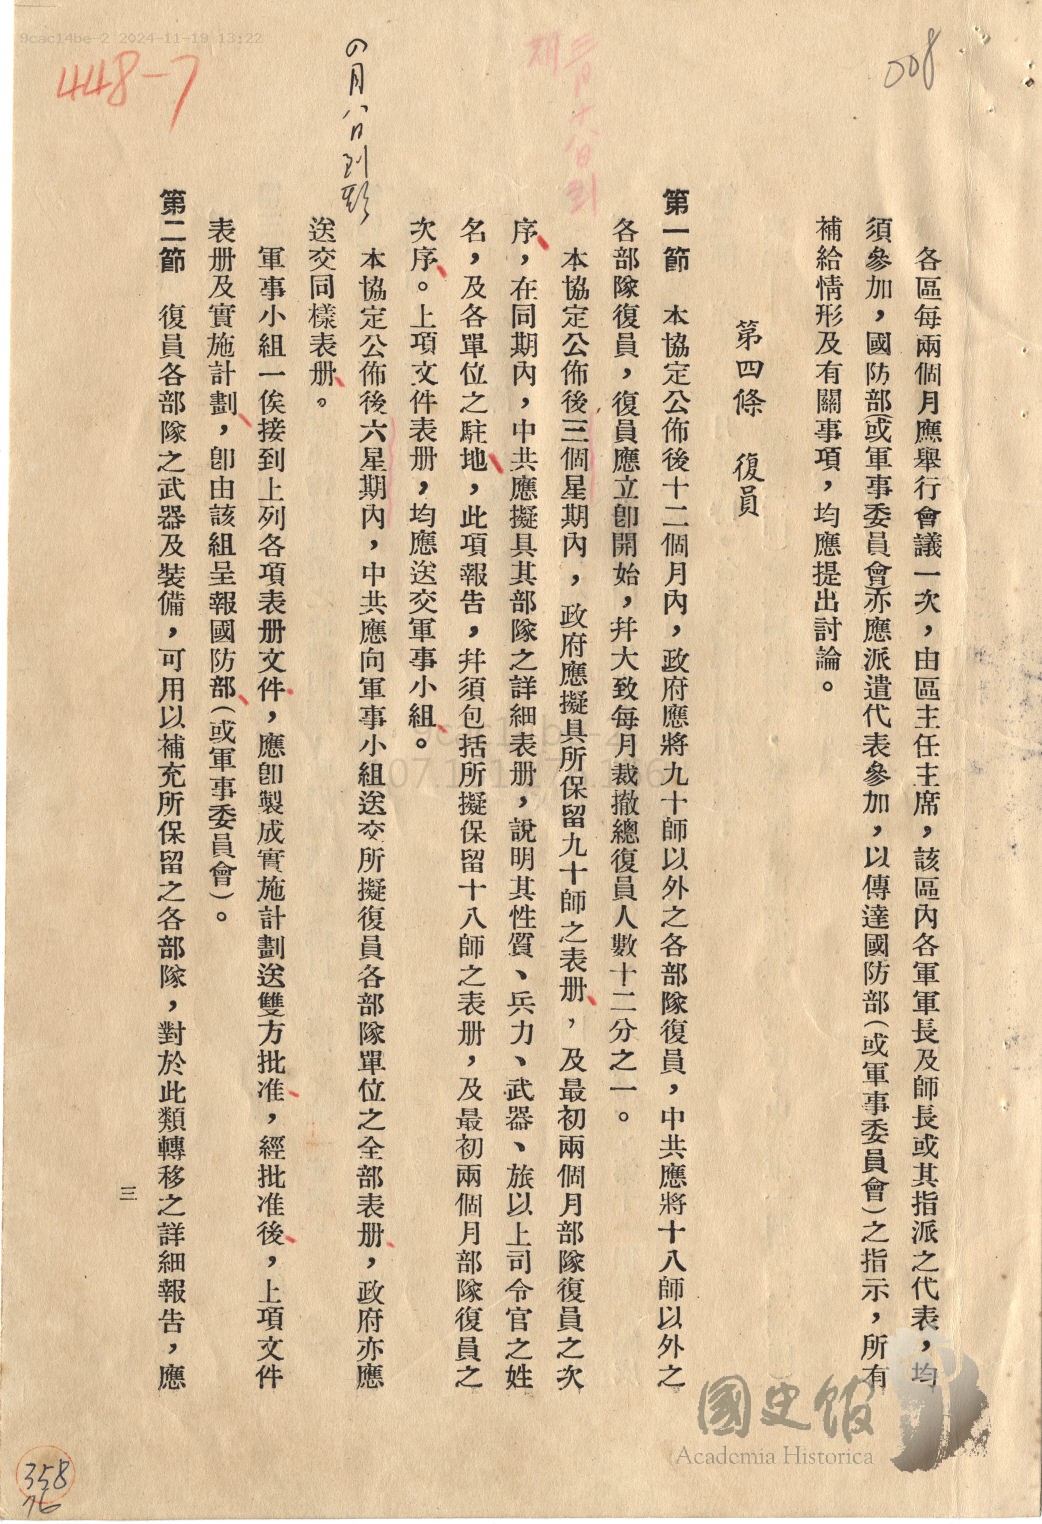 9cac14be-2 2024-11-19 13:22
448-7
008
各區每兩個月應舉行會議一次，由區主任主席，該區內各軍軍長及師長或其指派之代表，均
須參加，國防部(或軍事委員會)亦應派遣代表參加，以傳達國防部(或軍事委員會)之指示，所有
補給情形及有關事項，均應提出討論。
第四條　復員
第一節　本協定公佈後十二個月內，政府應將九十師以外之各部隊復員，中共應將十八師以外之
各部隊復員，復員應立卽開始，幷大致每月裁撤總復員人數十二分之一。
三月十八日到
本協定公佈後三個星期內，政府應擬具所保留九十師之表册，及最初兩個月部隊復員之次
序，在同期內，中共應擬具其部隊之詳細表册，說明其性質、兵力、武器、旅以上司令官之姓
名，及各單位之駐地，此項報告，幷須包括所擬保留十八師之表册，及最初兩個月部隊復員之
次序。上項文件表册，均應送交軍事小組。
本協定公佈後六星期內，中共應向軍事小組送交所擬復員各部隊單位之全部表册，政府亦應
送交同樣表册。
軍事小組一俟接到上列各項表册文件，應卽製成實施計劃送雙方批准，經批准後，上項文件
表册及實施計劃，卽由該組呈報國防部(或軍事委員會)。
第二節　復員各部隊之武器及裝備，可用以補充所保留之各部隊，對於此類轉移之詳細報告，應
三
國史館
Academia Historica
358
76